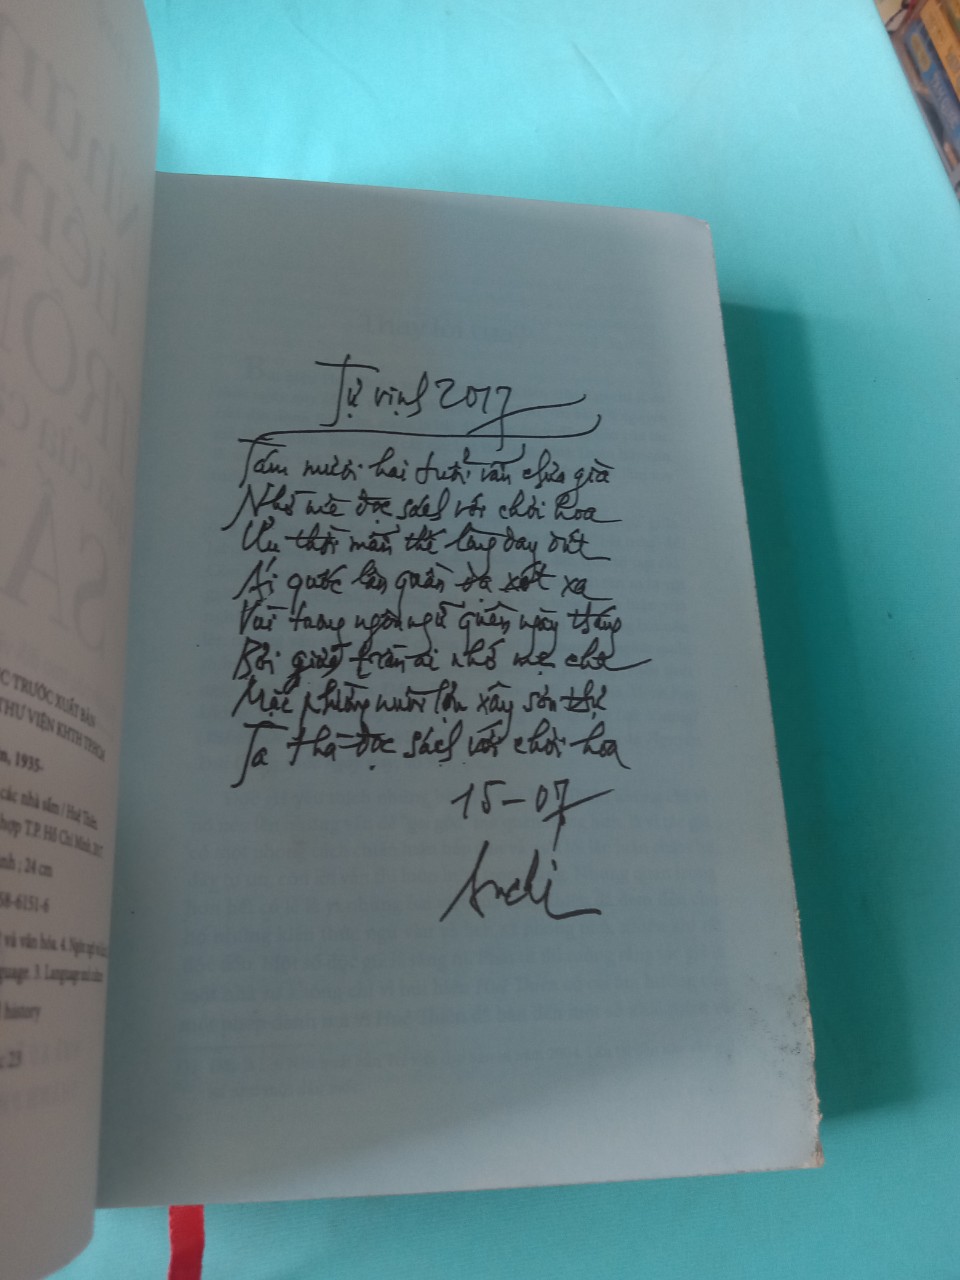 Tự vịnh 2017
Tám mươi hai tuổi vẫn chưa già
Nhờ mê đọc sách với chơi hoa
Ưu thời mẫn thế lòng day dứt
Ái quốc lân quần dạ xót xa
Vùi trong ngôn ngữ quên ngày tháng
Bởi giữa trần ai nhớ mẹ cha
Mặc phường nuôi lợn xây sơn thự
Ta thà đọc sách với chơi hoa
15-07
C TRƯỚC XUẤT BẢN
THƯ VIỆN KHTH TP.HCM
n, 1935-
các nhà sấm / Huệ Thiên
hợp T.P. Hồ Chí Minh, 2017
nh ; 24 cm
58-6151-6
và văn hóa. 4. Ngôn ngữ
guage. 3. Language and culture
history
: 23